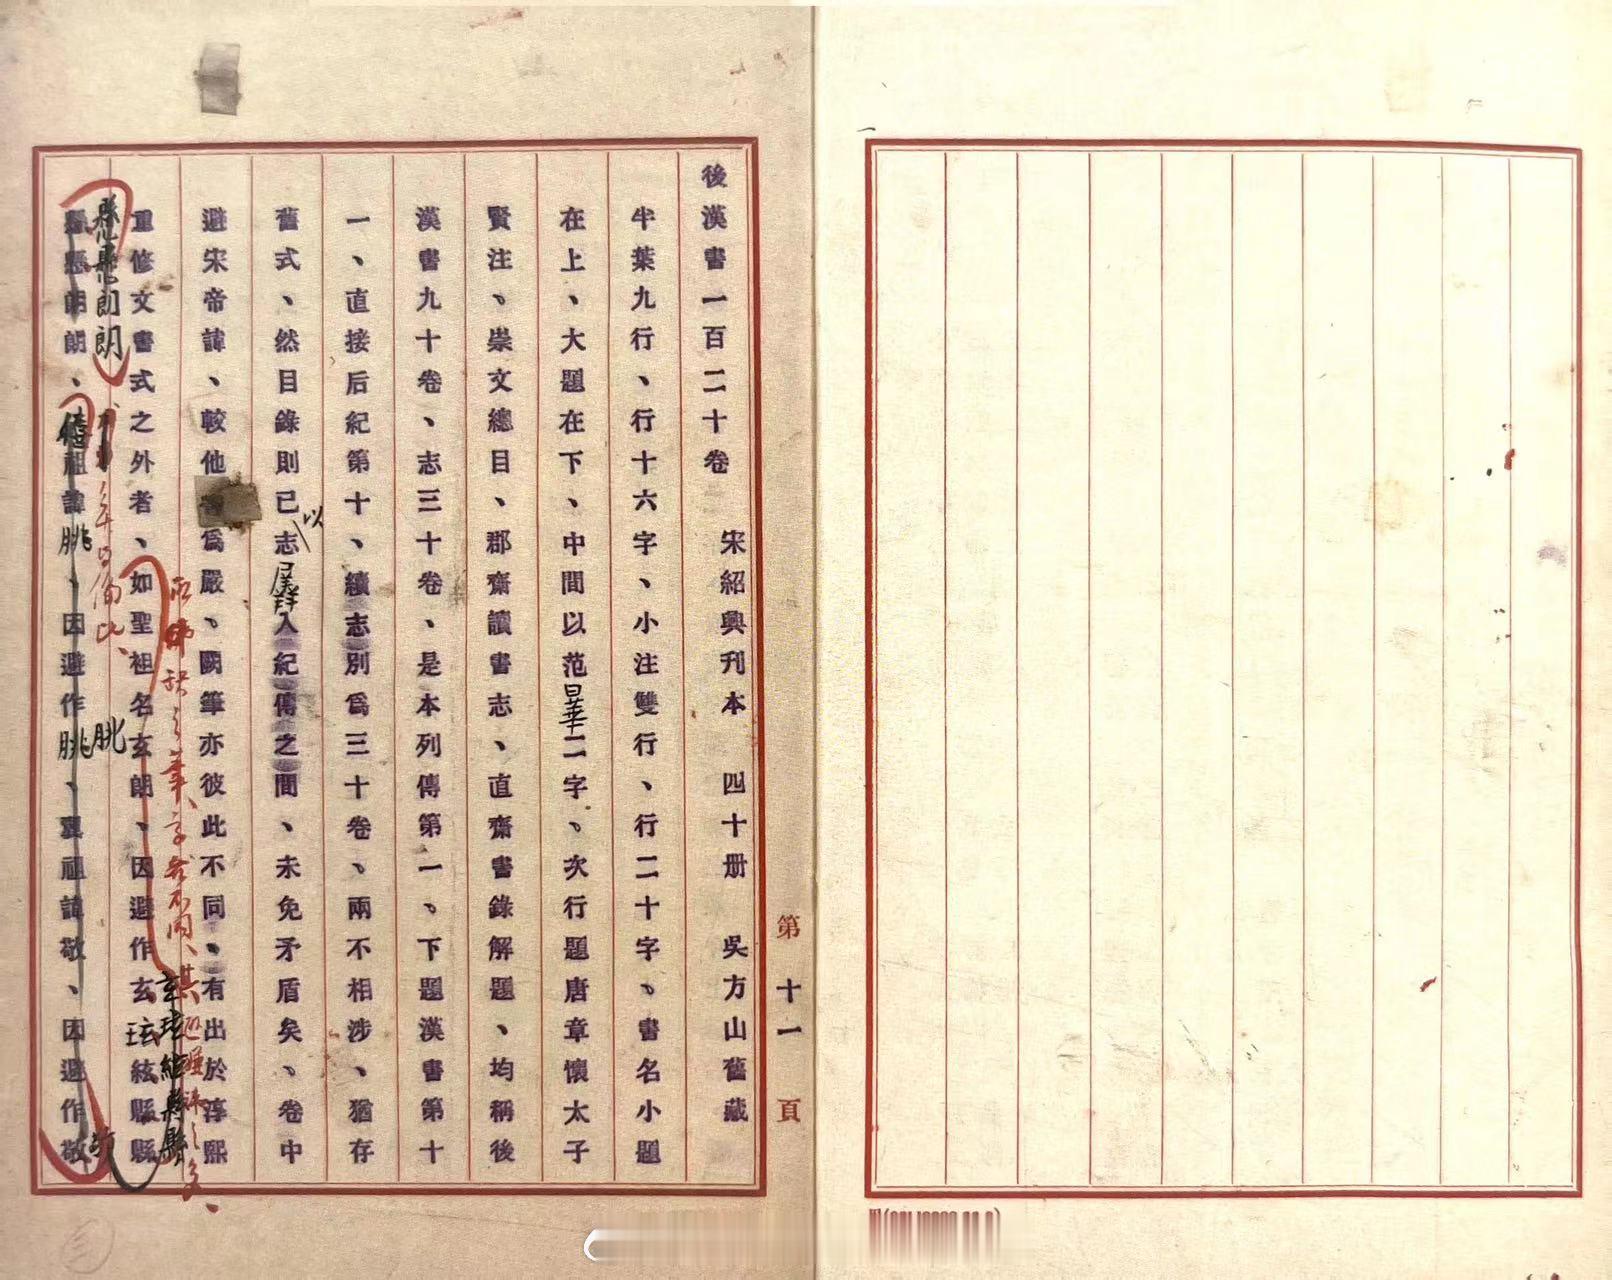 後漢書一百二十卷 宋紹興刊本 四十册 吳方山舊藏
半葉九行、行十六字、小注雙行、行二十字、書名小題
在上、大題在下、中間以范曄二字、次行題唐章懷太子
賢注、崇文總目、郡齋讀書志、直齋書錄解題、均稱後
漢書九十卷、志三十卷、是本列傳第一、下題漢書第十
一、直接后紀第十、續志別爲三十卷、兩不相涉、猶存
舊式、然目錄則已志羼入紀傳之間、未免矛盾矣、卷中
以
避宋帝諱、較他爲嚴、闕筆亦彼此不同、有出於淳熙
重修文書式之外者、如聖祖名玄朗、因避作玄玹絃縣縣
玄玹絃縣縣
懸懸朗朗、僖祖諱脁、因避作脁、翼祖諱敬、因避作敬
懸懸朗朗
脁
敬
第十一頁
三